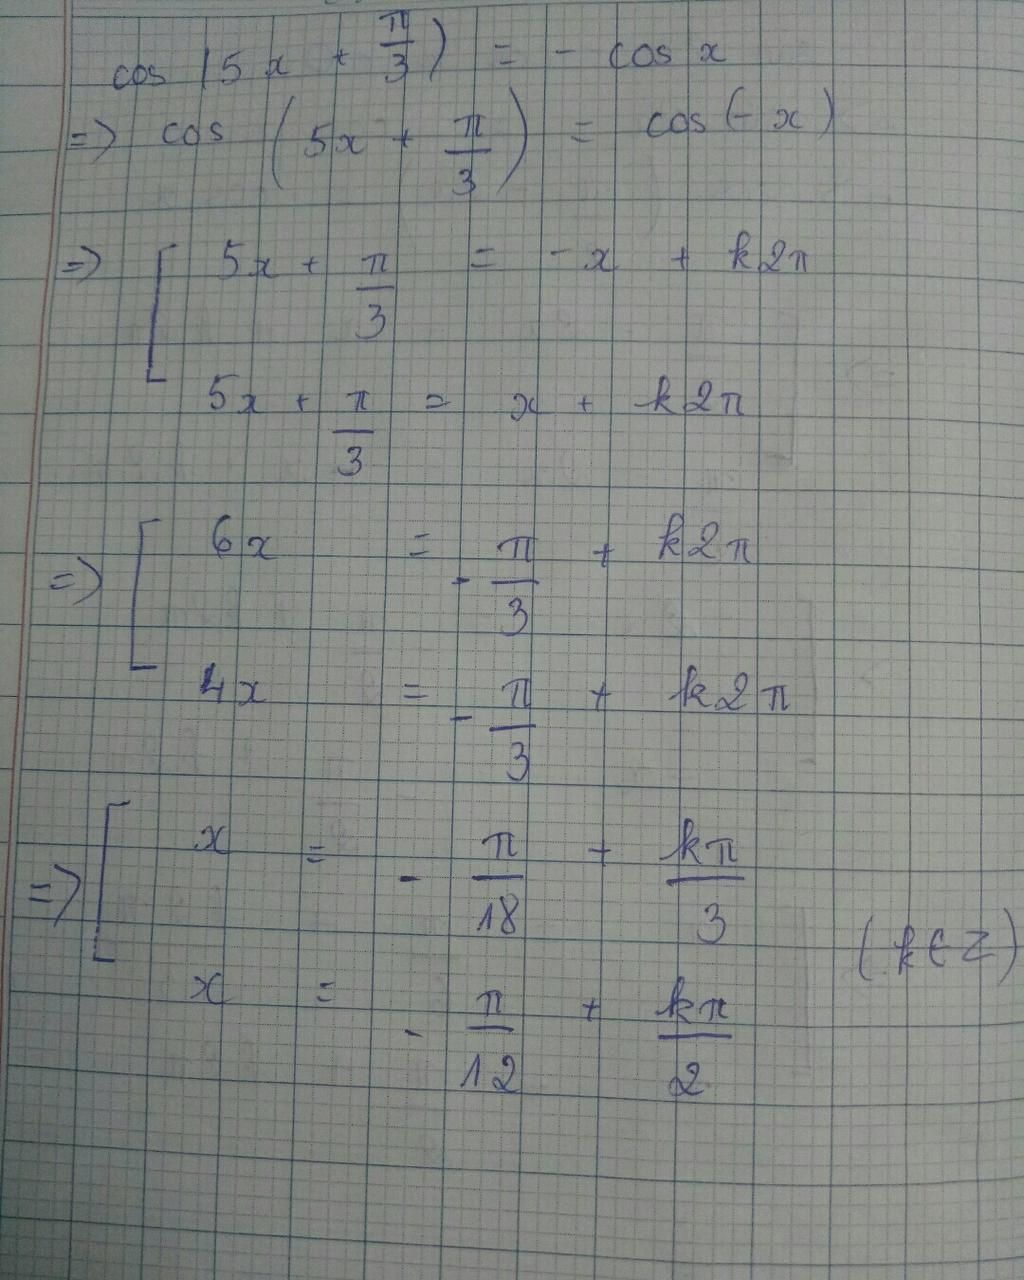 cos (5x + π/3) = - cos x
=> cos (5x + π/3) = cos (- x)
=> [ 5x + π/3 = - x + k2π
5x + π/3 = x + k2π
=> [ 6x = - π/3 + k2π
4x = - π/3 + k2π
=> [ x = - π/18 + kπ/3
(k ∈ Z)
x = - π/12 + kπ/2